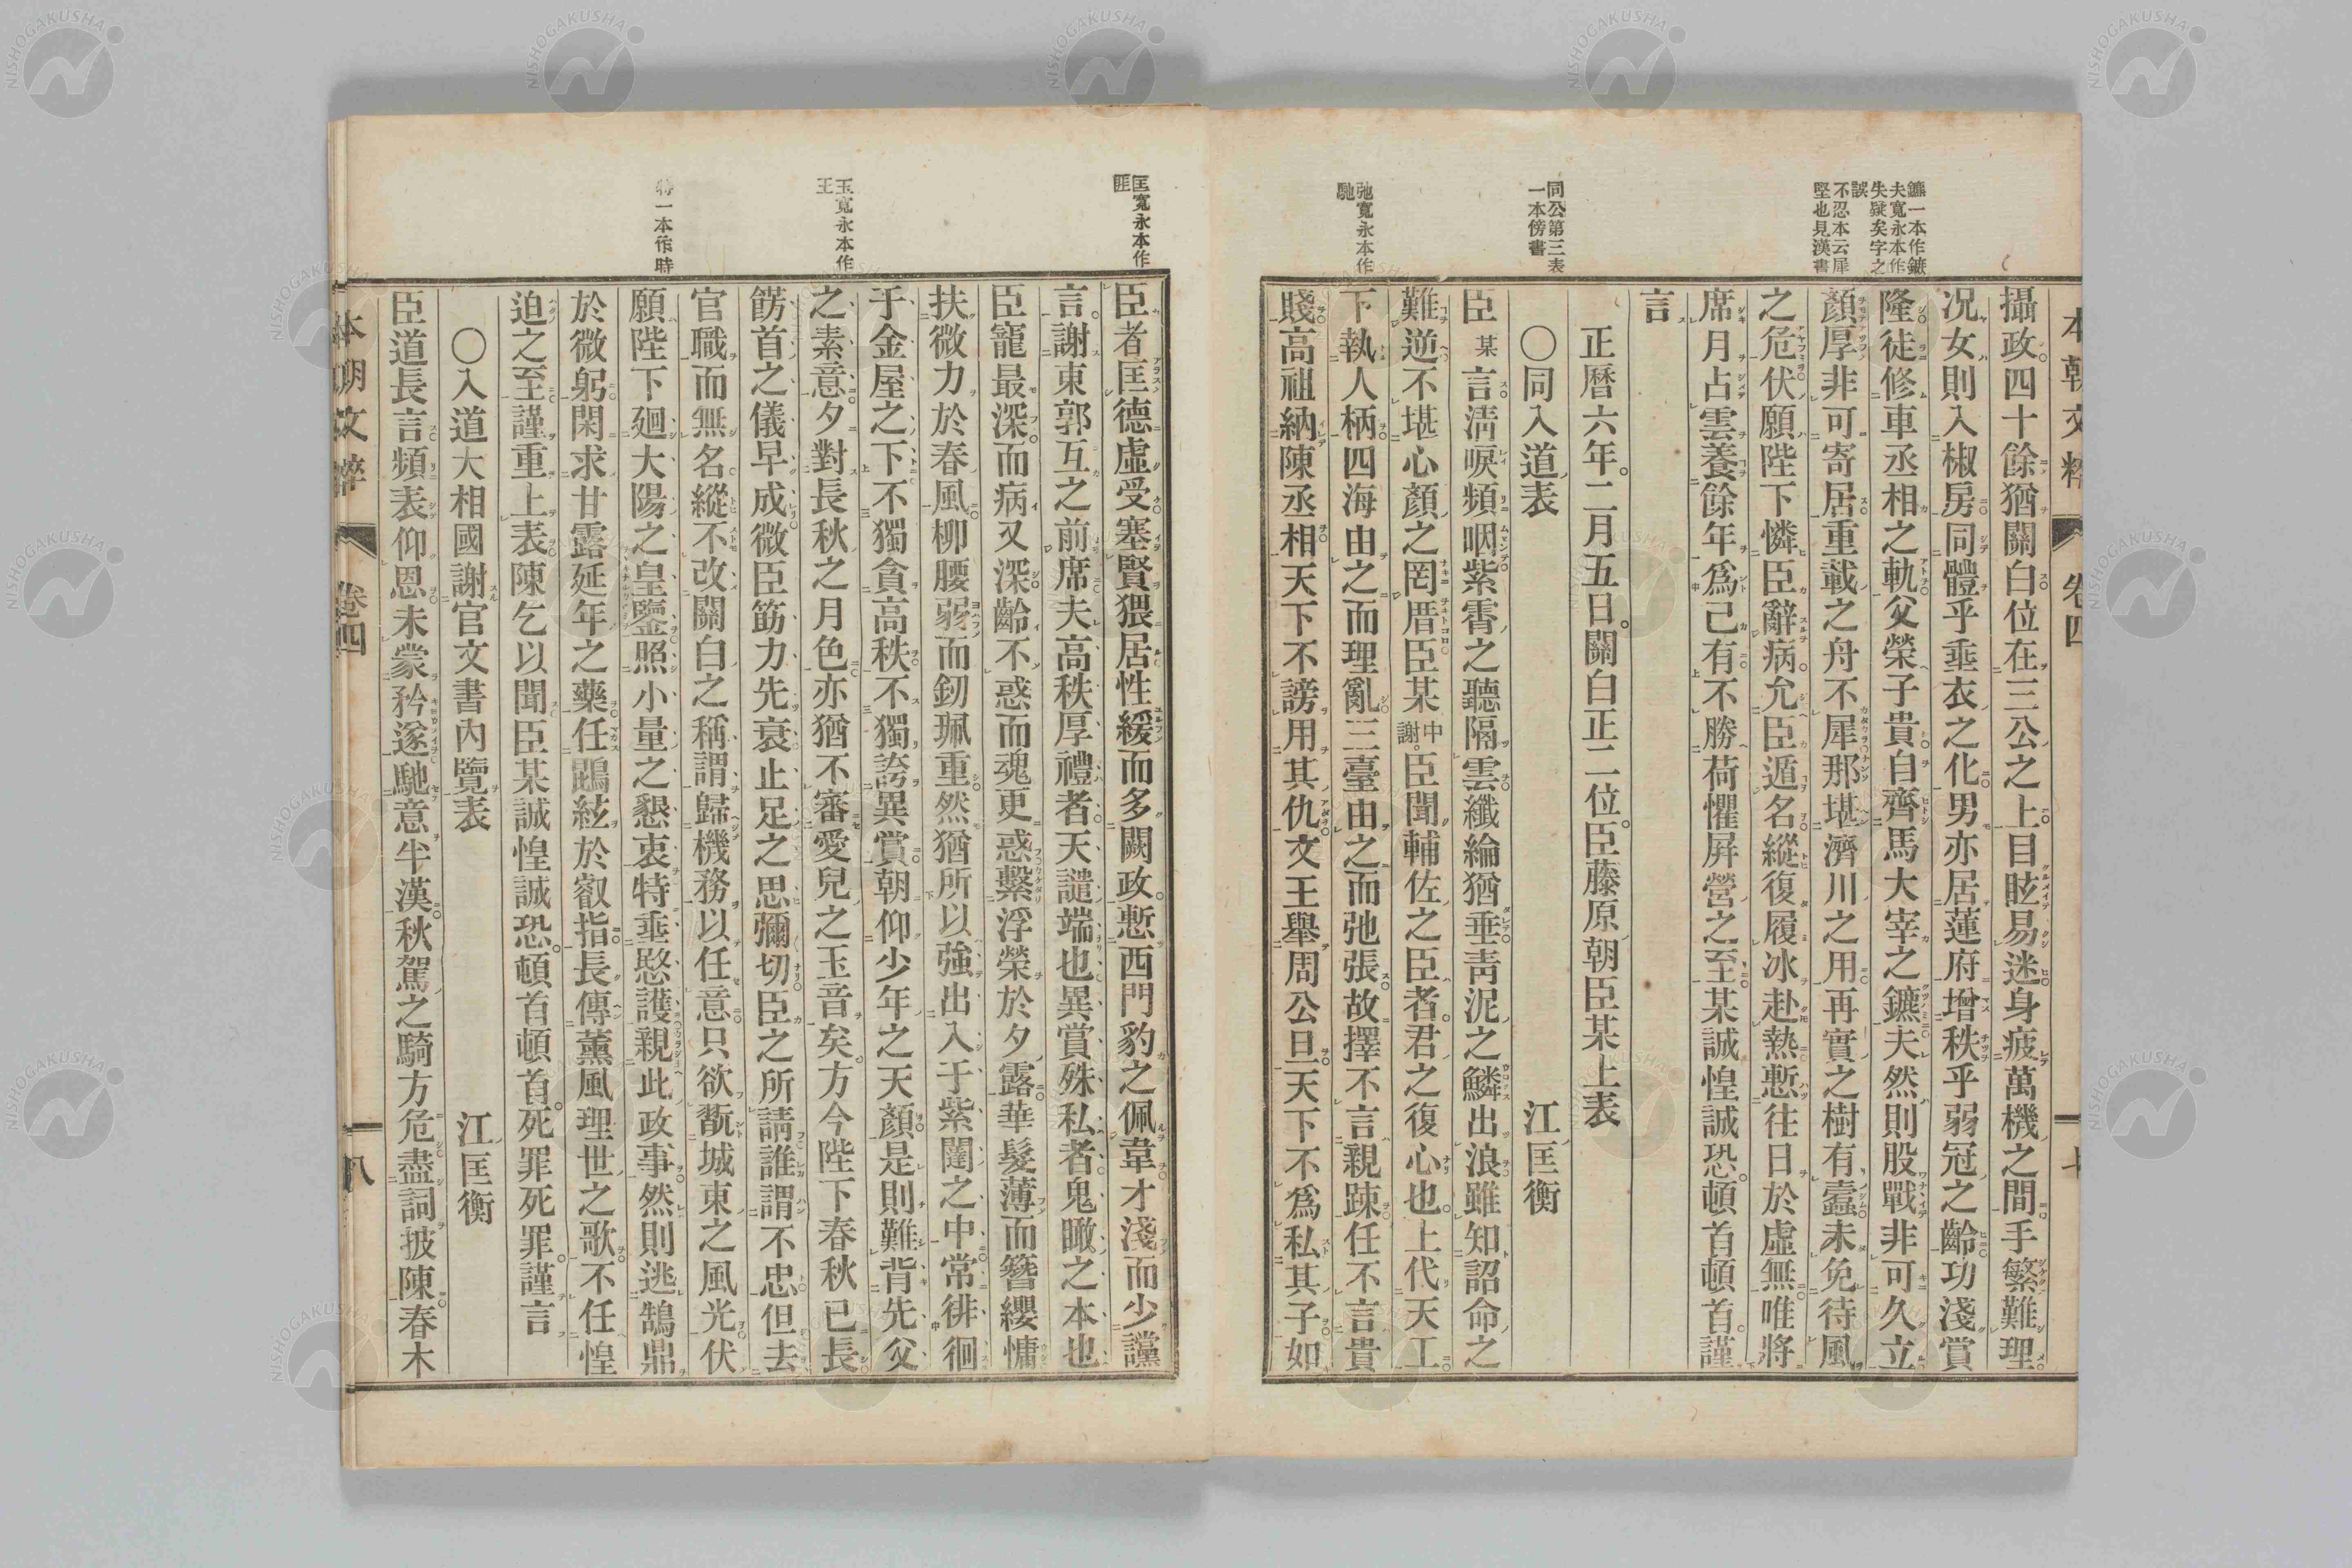 本朝文粹 卷四 七
鑣一本作鑣
夫寬永本作
失疑矣字之
誤
不忍本云犀
堅也見漢書
同公第三表
一本傍書
弛寬永本作
馳
攝政四十餘猶關白位在三公之上目眩易迷身疲萬機之間手繁難理
况女則入椒房同體乎垂衣之化男亦居蓮府增秩乎弱冠之齡功淺賞
隆徒修車丞相之軌父榮子貴自齊馬大宰之鑣夫然則股戰非可久立
顏厚非可寄居重載之舟不犀那堪濟川之用再實之樹有蠹未免待風
之危伏願陛下憐臣辭病允臣遁名縱復履冰赴熱慙往日於虛無唯將
席月占雲養餘年爲己有不勝荷懼屛營之至某誠惶誠恐頓首頓首謹
言
正曆六年二月五日關白正二位臣藤原朝臣某上表
〇同入道表 江匡衡
臣某言淸唳頻咽紫霄之聽隔雲纖綸猶垂靑泥之鱗出浪雖知詔命之
難逆不堪心顏之罔厝臣某中謝臣聞輔佐之臣者君之復心也上代天工
下執人柄四海由之而理亂三臺由之而弛張故擇不言親踈任不言貴
賤高祖納陳丞相天下不謗用其仇文王舉周公旦天下不爲私其子如
匡寬永本作
匪
玉寬永本作
王
特一本作時
臣者匡德虛受塞賢猥居性緩而多闕政慙西門豹之佩韋才淺而少讜
言謝東郭互之前席夫高秩厚禮者天譴端也異賞殊私者鬼瞰之本也
臣寵最深而病又深齡不惑而魂更惑繫浮榮於夕露華髮薄而簪纓慵
扶微力於春風柳腰弱而釼珮重然猶所以強出入于紫闥之中常徘徊
于金屋之下不獨貪高秩不獨誇異賞朝仰少年之天顏是則難背先父
之素意夕對長秋之月色亦猶不審愛兒之玉音矣方今陛下春秋已長
餝首之儀早成微臣筋力先衰止足之思彌切臣之所請誰謂不忠但去
官職而無名縱不改關白之稱謂歸機務以任意只欲翫城東之風光伏
願陛下廻大陽之皇鑒照小量之懇衷特垂愍護親此政事然則逃鵠鼎
於微躬閑求甘露延年之藥任鵾絃於叡指長傳薰風理世之歌不任惶
迫之至謹重上表陳乞以聞臣某誠惶誠恐頓首頓首死罪死罪謹言
〇入道大相國謝官文書內覽表 江匡衡
臣道長言頻表仰恩未蒙矜遂馳意半漢秋駕之騎方危盡詞披陳春木
本朝文粹 卷四 八